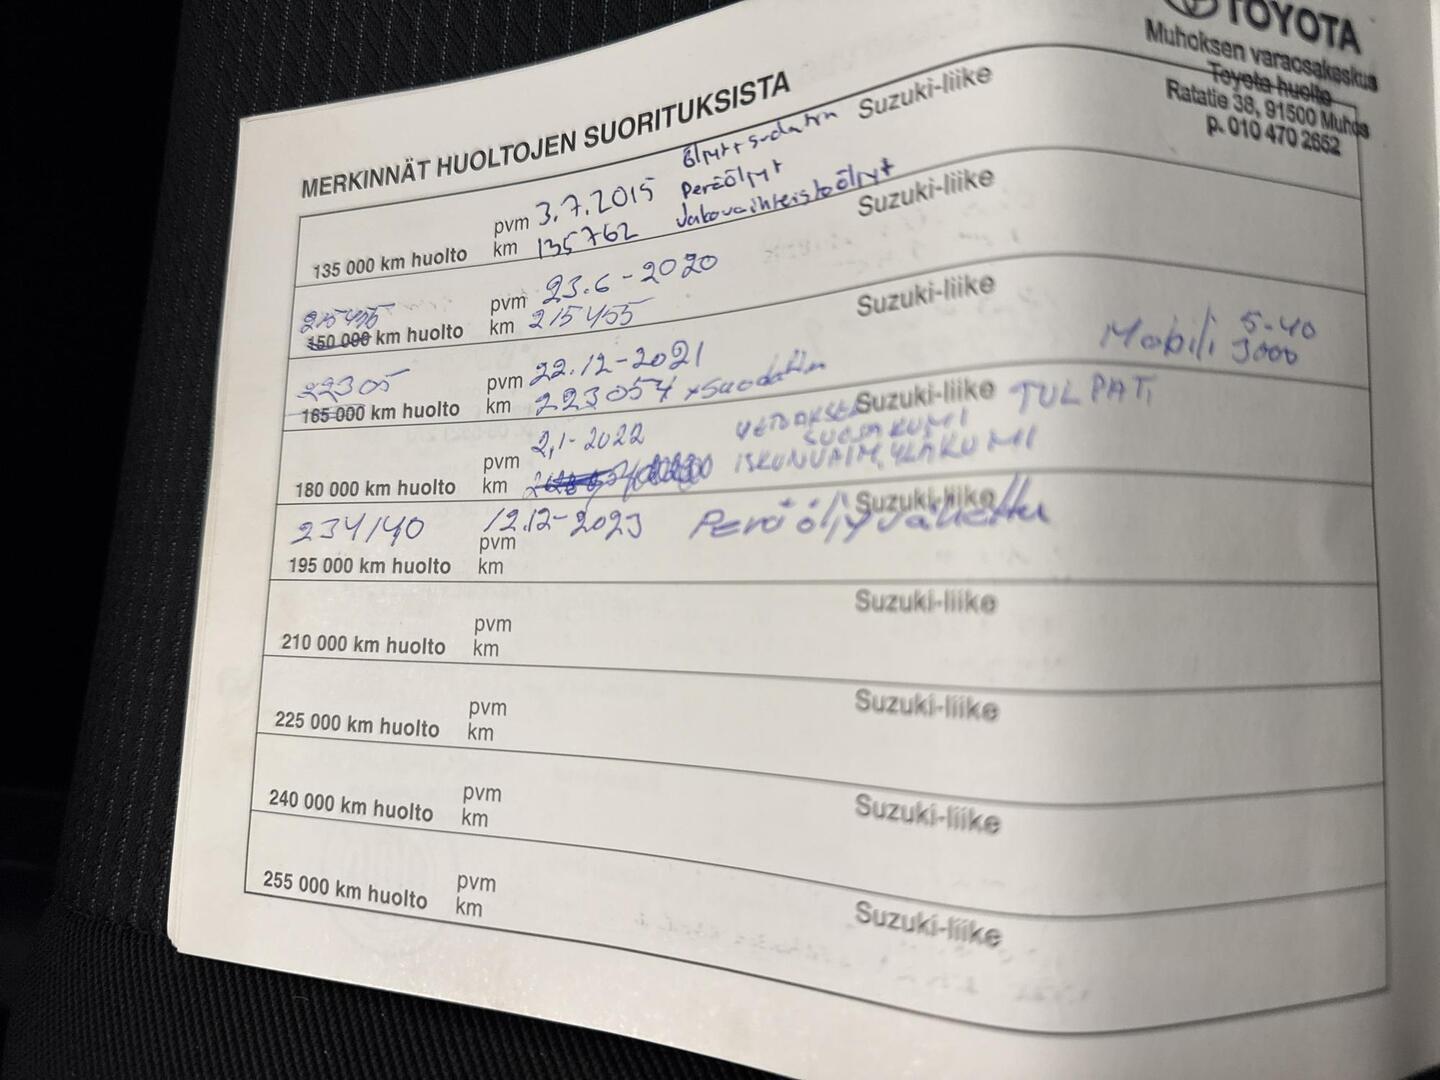 TOYOTA
Muhoksen varaosakeskus
Toyota huolto
Ratatie 38, 91500 Muhos
p. 010 470 2652
MERKINNÄT HUOLTOJEN SUORITUKSISTA
135 000 km huolto pvm 3.7.2015 Öljyt+suodatin Suzuki-liike
km 135762 Peräöljyt
Jakovaihteistoöljyt
215455
150 000 km huolto pvm 23.6-2020 Suzuki-liike
km 215455
22305
165 000 km huolto pvm 22.12-2021 Suzuki-liike
km 223054 + suodatin Mobili 5-40
3000
180 000 km huolto pvm 2,1-2022 Suzuki-liike TULPAT,
km SUOJAKUMI
ISKUNVAIM. YLÄKUMI
234140 12.12-2023 Perä öljy vaihettu Suzuki-liike
195 000 km huolto pvm
km
210 000 km huolto pvm Suzuki-liike
km
225 000 km huolto pvm Suzuki-liike
km
240 000 km huolto pvm Suzuki-liike
km
255 000 km huolto pvm Suzuki-liike
km